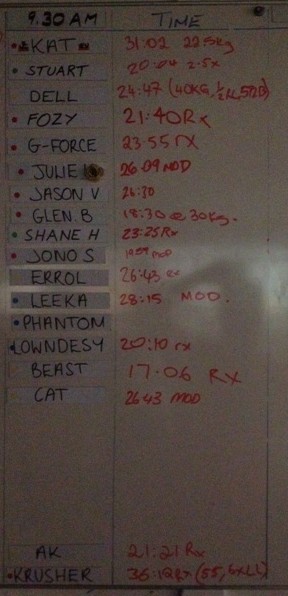 9.30 AM TIME
KAT 31:02 22.5kg
STUART 2.5x
DELL 24:47 (40KG,
FOZY 21:40 Rx
G-FORCE 23:55 rx
JULIE 26.09 MOD
JASON V 26:30
GLEN.B 18:30 @ 30kg.
SHANE H 23:25 Rx
JONO S MOD
ERROL 26:43
LEEKA 28:15 MOD.
PHANTOM
LOWNDESY 20:10 rx
BEAST 17.06 RX
CAT 26 43 MOD
AK 21:21 Rx
KRUSHER